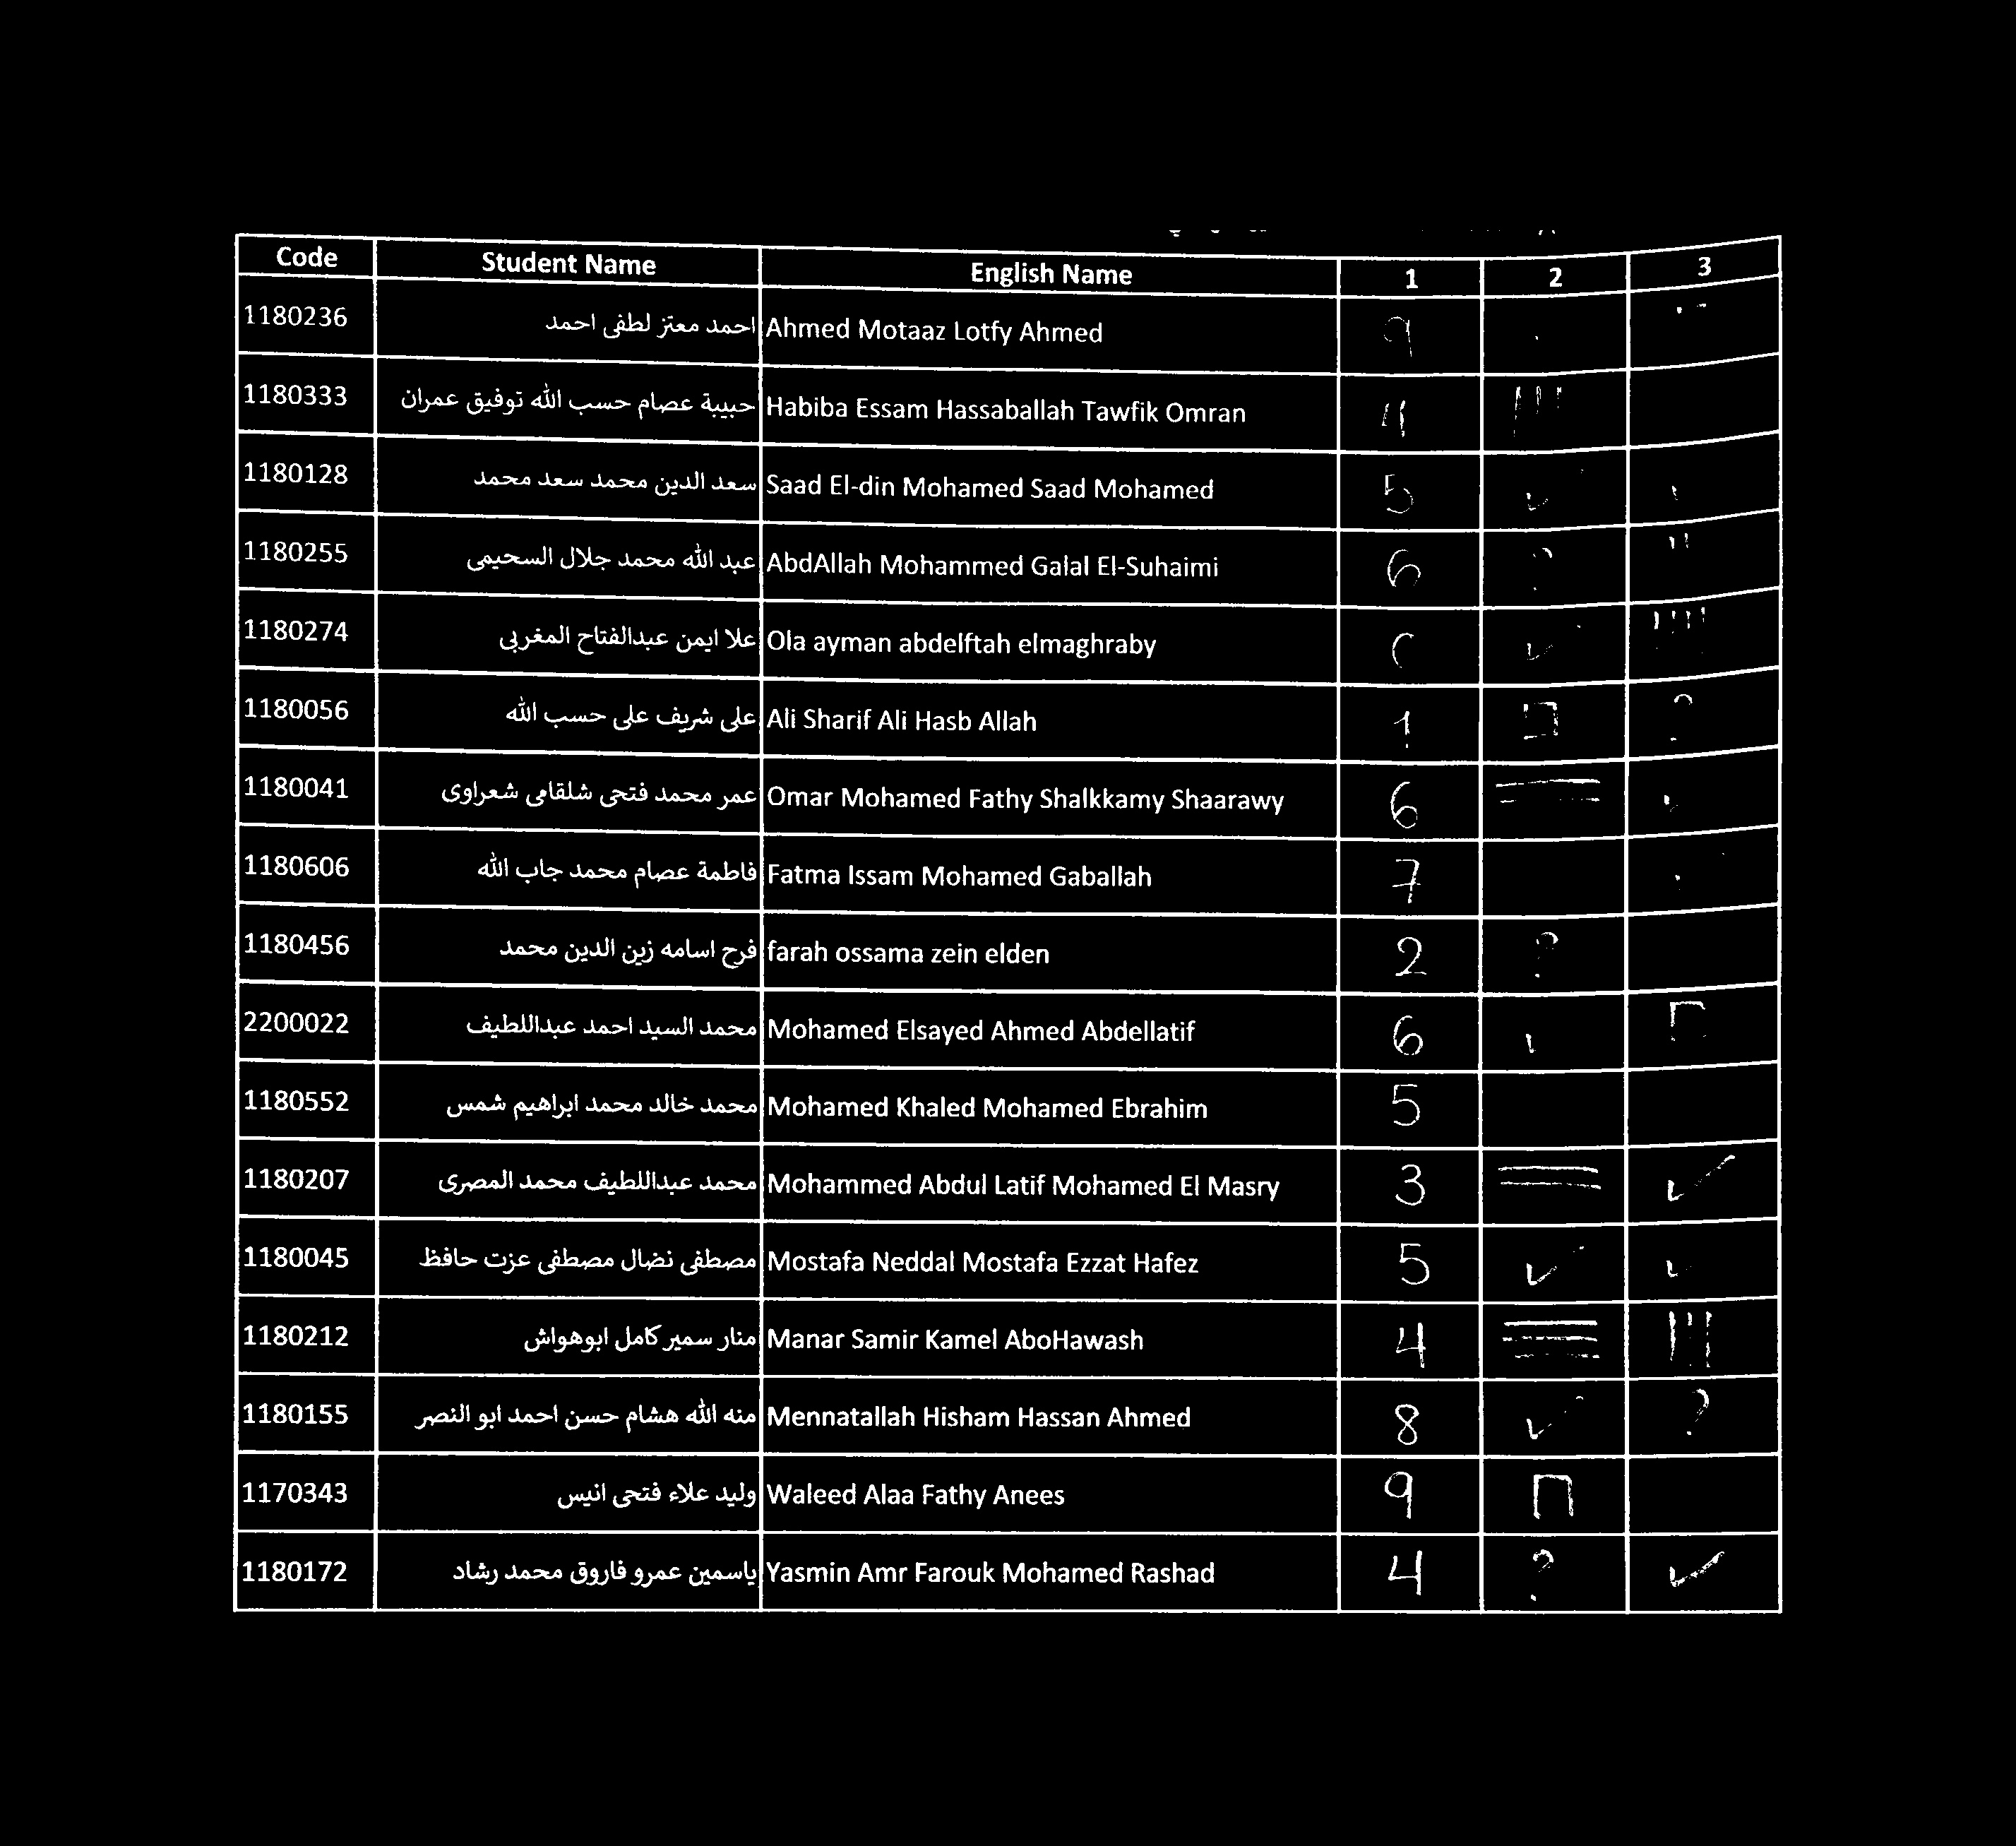 Code Student Name English Name 1 2 3
1180236 احمد معتز لطفى احمد Ahmed Motaaz Lotfy Ahmed 9
1180333 حبيبة عصام حسب الله توفيق عمران Habiba Essam Hassaballah Tawfik Omran 4
1180128 سعد الدين محمد سعد محمد Saad El-din Mohamed Saad Mohamed 5 ✓
1180255 عبد الله محمد جلال السحيمى AbdAllah Mohammed Galal El-Suhaimi 6 ?
1180274 علا ايمن عبدالفتاح المغربى Ola ayman abdelftah elmaghraby ✓
1180056 على شريف على حسب الله Ali Sharif Ali Hasb Allah 1 ?
1180041 عمر محمد فتحى شلقامى شعراوى Omar Mohamed Fathy Shalkkamy Shaarawy 6
1180606 فاطمة عصام محمد جاب الله Fatma Issam Mohamed Gaballah 7
1180456 فرح اسامه زين الدين محمد farah ossama zein elden 2 ?
2200022 محمد السيد احمد عبداللطيف Mohamed Elsayed Ahmed Abdellatif 6
1180552 محمد خالد محمد ابراهيم شمس Mohamed Khaled Mohamed Ebrahim 5
1180207 محمد عبداللطيف محمد المصرى Mohammed Abdul Latif Mohamed El Masry 3 = ✓
1180045 مصطفى نضال مصطفى عزت حافظ Mostafa Neddal Mostafa Ezzat Hafez 5 ✓ ✓
1180212 منار سمير كامل ابوهواش Manar Samir Kamel AboHawash 4 ≡ |||
1180155 منه الله هشام حسن احمد ابو النصر Mennatallah Hisham Hassan Ahmed 8 ✓ ?
1170343 وليد علاء فتحى انيس Waleed Alaa Fathy Anees 9
1180172 ياسمين عمرو فاروق محمد رشاد Yasmin Amr Farouk Mohamed Rashad 4 ? ✓